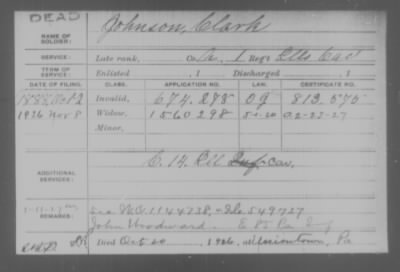 DEAD
NAME OF SOLDIER: Johnson, Clark
SERVICE: Late rank, Co. A, 1 Reg't Ills Cav
TERM OF SERVICE: Enlisted , 1 Discharged , 1
DATE OF FILING. CLASS. APPLICATION NO. LAW. CERTIFICATE NO.
1888 Invalid, 674.278 813.575
1926 Nov 8 Widow, 1560298 a 2-23-27
Minor,
ADDITIONAL SERVICES: C. 14. Ill Inf cav,
REMARKS: 1144738, 549727
John Woodward E Pa Inf
Died Oct 1926, at Uniontown, Pa